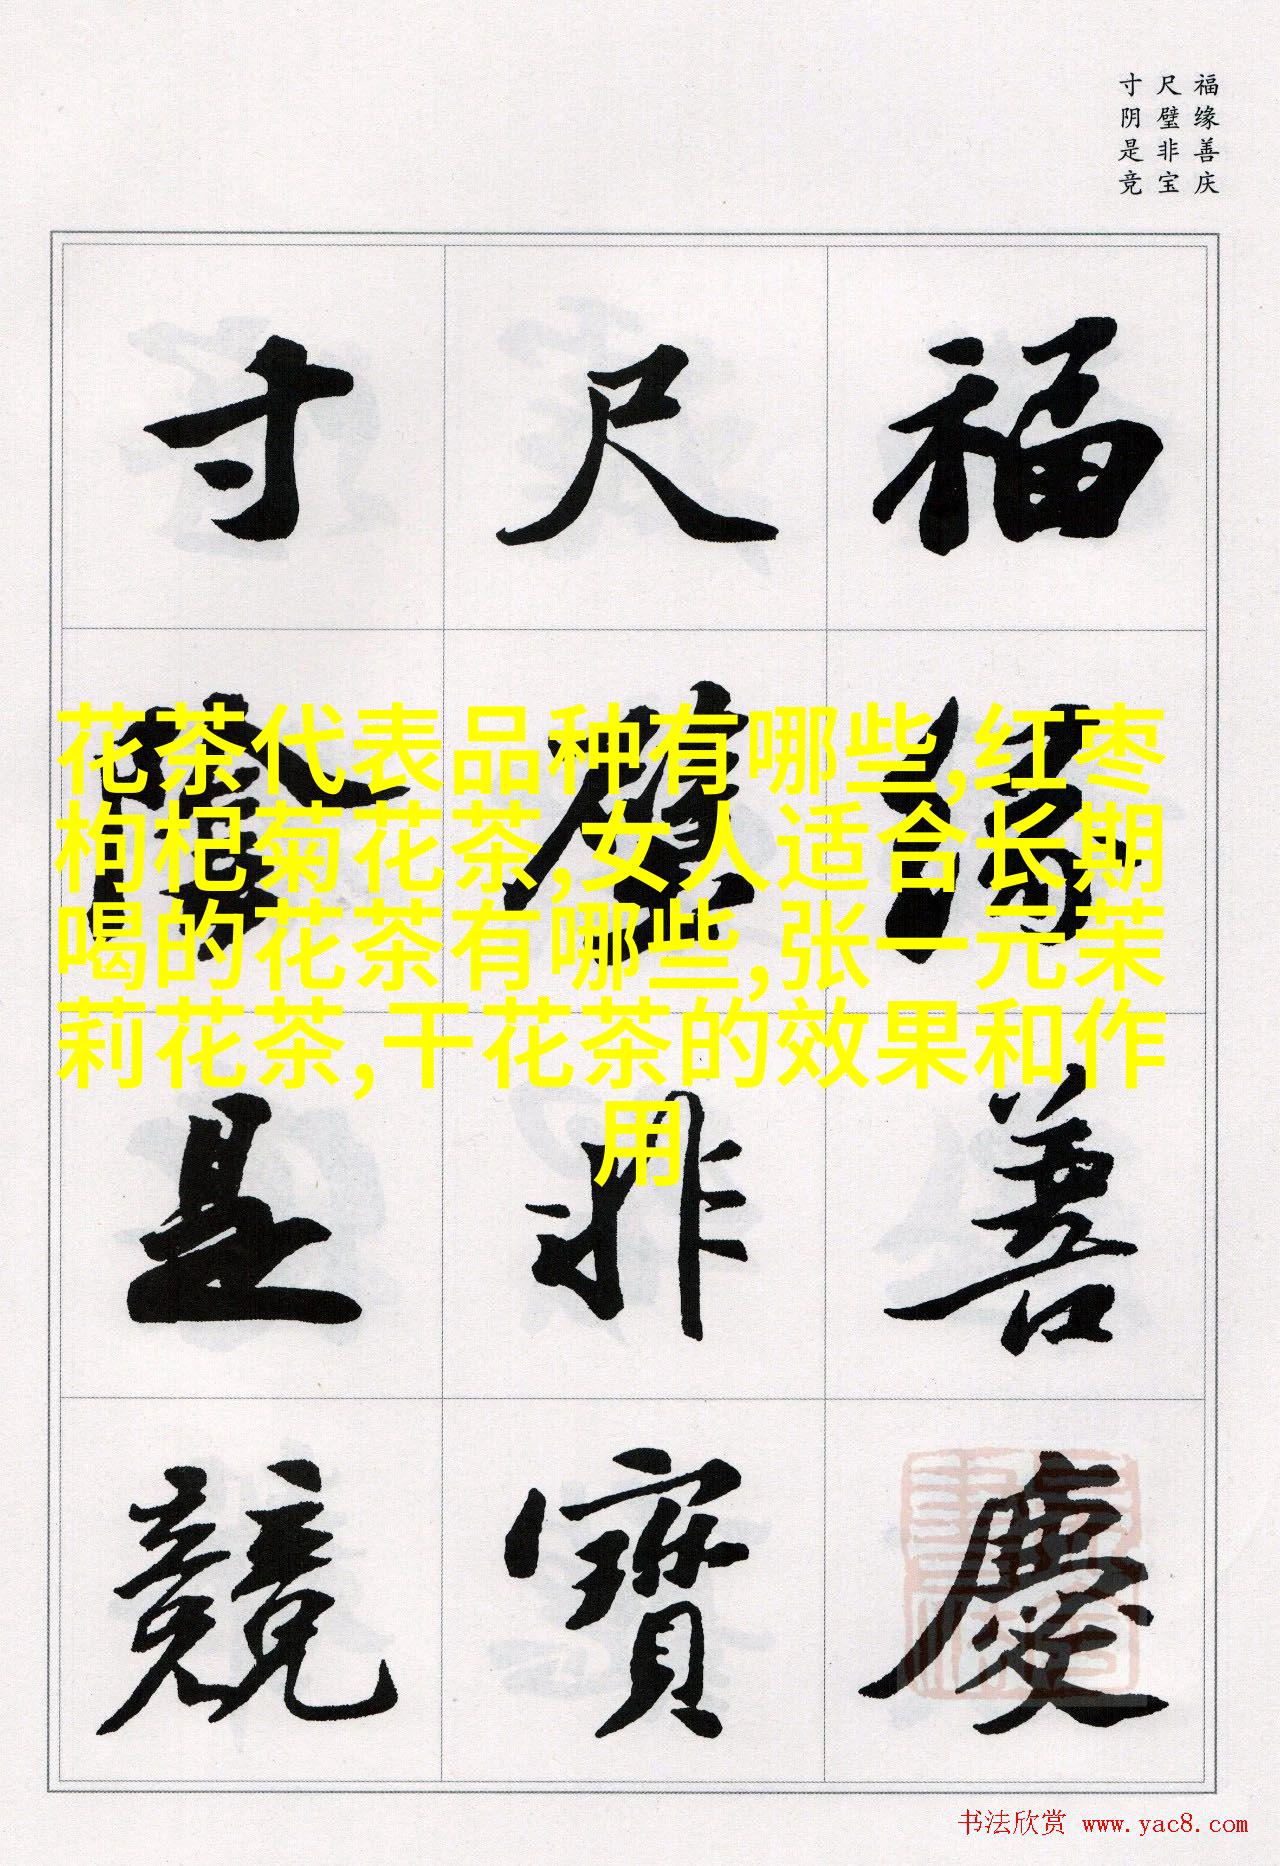 福缘善庆
尺璧非宝
寸阴是竞
福緣善慶
尺璧非寶
寸陰是競
花茶代表品种有哪些,红枣
枸杞菊花茶,女人适合长期
喝的花茶有哪些,张一元茉
莉花茶,干花茶的效果和作
用
书法欣赏 www.yac8.com